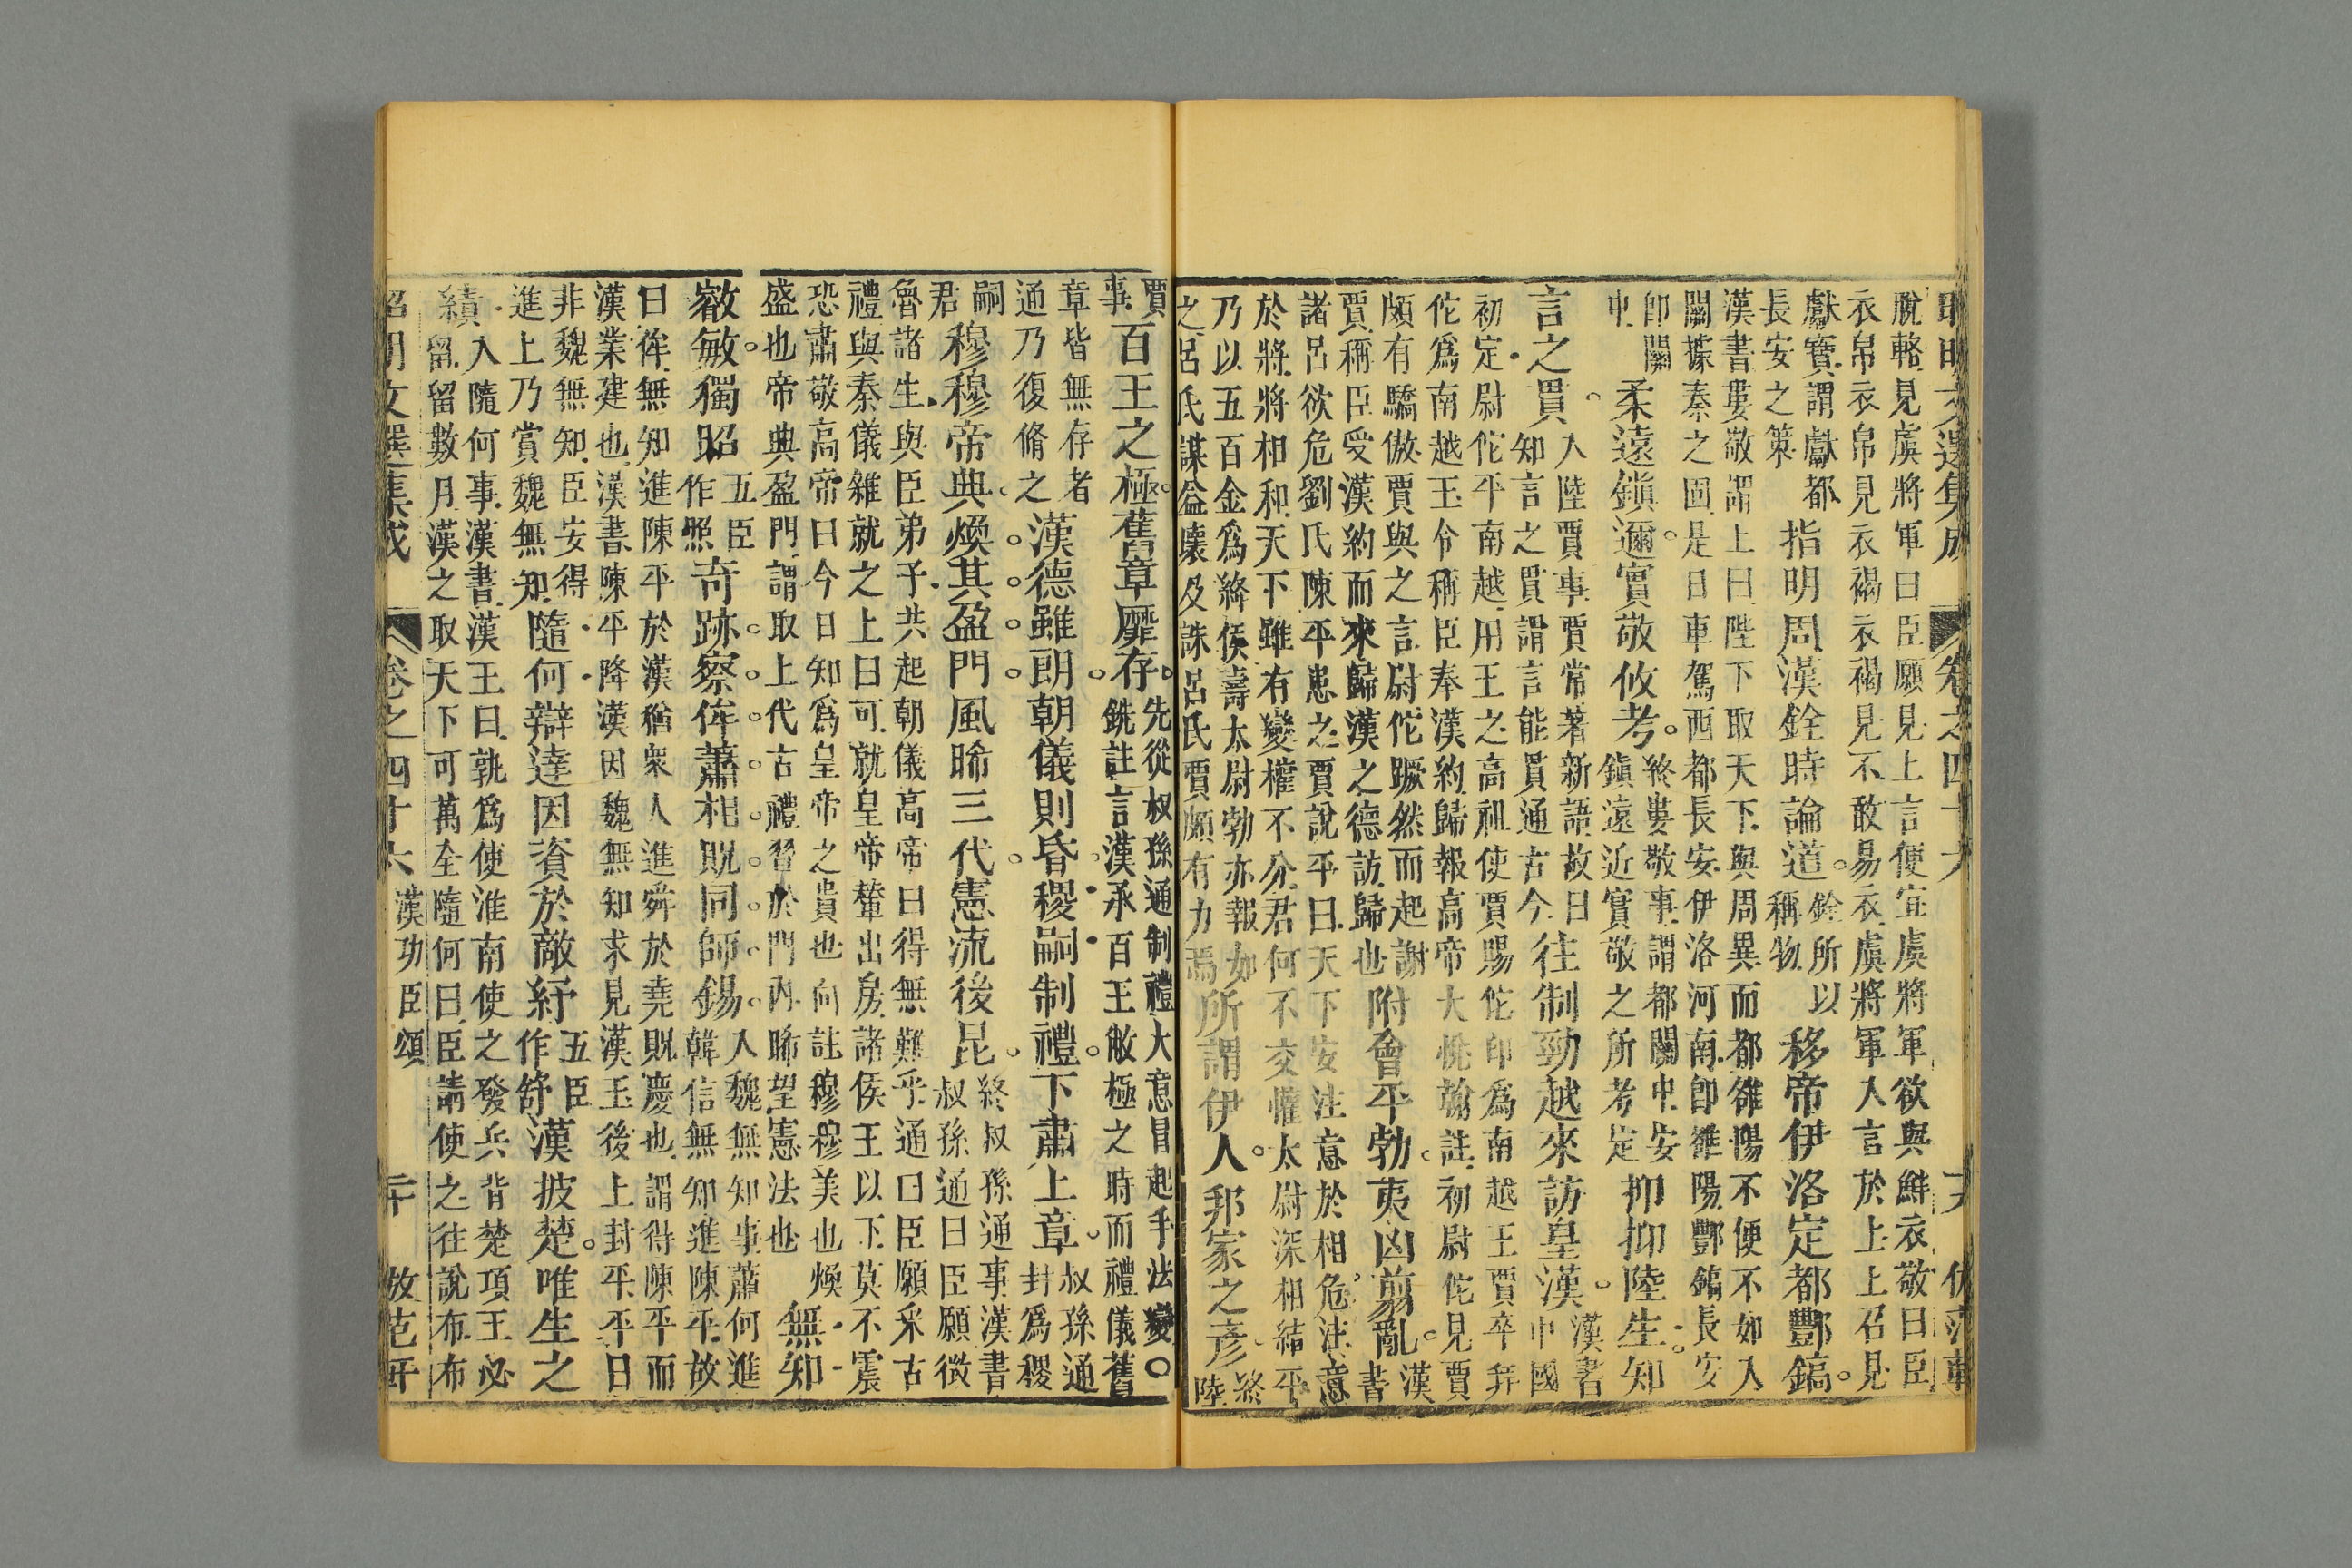 昭明文選集成 卷之四十六
脫輅見虞將軍曰臣願見上言便宜虞將軍欲與鮮衣敬曰臣
衣帛衣帛見衣褐衣褐見不敢易衣虞將軍入言於上上召見
獻寶謂獻都
長安之策
指明周漢銓時論道
銓所以
稱物
移帝伊洛定都酆鎬
漢書婁敬謂上曰陛下取天下與周異而都雒陽不便不如入
關據秦之固是日車駕西都長安伊洛河南即雒陽酆鎬長安
即關
中
柔遠鎮邇實敬攸考
終婁敬事謂都關中安
鎮遠近實敬之所考定
抑抑陸生知
言之貫
入陸賈事賈常著新語故曰
知言之貫謂言能貫通古今
往制勁越來訪皇漢
漢書
中國
初定尉佗平南越用王之高祖使賈賜佗印為南越王賈卒拜
佗為南越王令稱臣奉漢約歸報高帝大悅翰註初尉佗見賈
頗有驕傲賈與之言尉佗蹶然而起謝
賈稱臣受漢約而來歸漢之德訪歸也
附會平勃夷凶翦亂
漢
書
諸呂欲危劉氏陳平患之賈說平曰天下安注意於相危注意
於將將相和天下雖有變權不分君何不交懽太尉深相結平
乃以五百金為絳侯壽太尉勃亦報如
之呂氏謀益壞及誅呂氏賈頗有力焉
所謂伊人邦家之彥
終
陸
賈
事
百王之極舊章靡存
先從叔孫通制禮大意冒起手法變○
銑註言漢承百王敝極之時而禮儀舊
章皆無存者
通乃復脩之
漢德雖朗朝儀則昏稷嗣制禮下肅上章
叔孫通
封為稷
嗣
君
穆穆帝典煥其盈門風睎三代憲流後昆
終叔孫通事漢書
叔孫通曰臣願徵
魯諸生與臣弟子共起朝儀高帝曰得無難乎通曰臣願采古
禮與秦儀雜就之上曰可就皇帝輦出房諸侯王以下莫不震
恐肅敬高帝曰今日知為皇帝之貴也向註穆穆美也煥
盛也帝典盈門謂取上代古禮習於門內睎望憲法也
無知
叡敏獨昭
五臣
作照
奇跡察侔蕭相貺同師錫
入魏無知事蕭何進
韓信無知進陳平故
曰侔無知進陳平於漢猶衆人進舜於堯貺慶也謂得陳平而
漢業建也漢書陳平降漢因魏無知求見漢王後上封平平曰
非魏無知臣安得
進上乃賞魏無知
隨何辯達因資於敵紓
五臣
作舒
漢披楚唯生之
績
入隨何事漢書漢王曰孰為使淮南使之發兵背楚項王必
留留數月漢之取天下可萬全隨何曰臣請使之往說布布
昭明文選集成 卷之四十六 漢功臣頌 二十 倣范軒